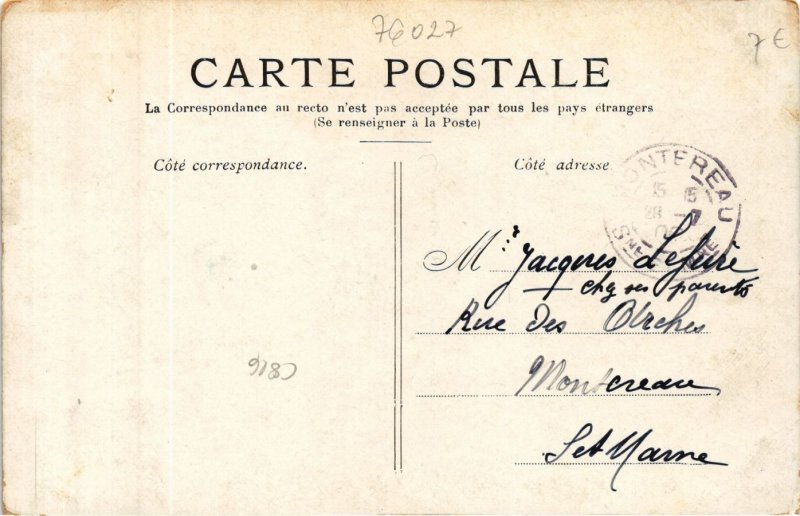 76027
7€
CARTE POSTALE
La Correspondance au recto n'est pas acceptée par tous les pays étrangers
(Se renseigner à la Poste)
Côté correspondance.
Côté adresse
MONTEREAU
Mr Jacques Lefevre
chez ses parents
Rue Des Ormes
Montereau
S et Marne
C816